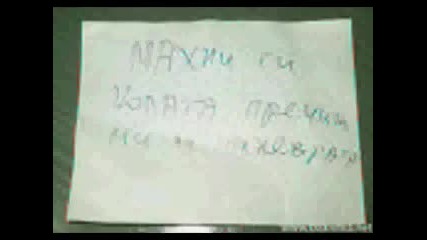 МАХни си
КОЛАТА пречиш
ми за